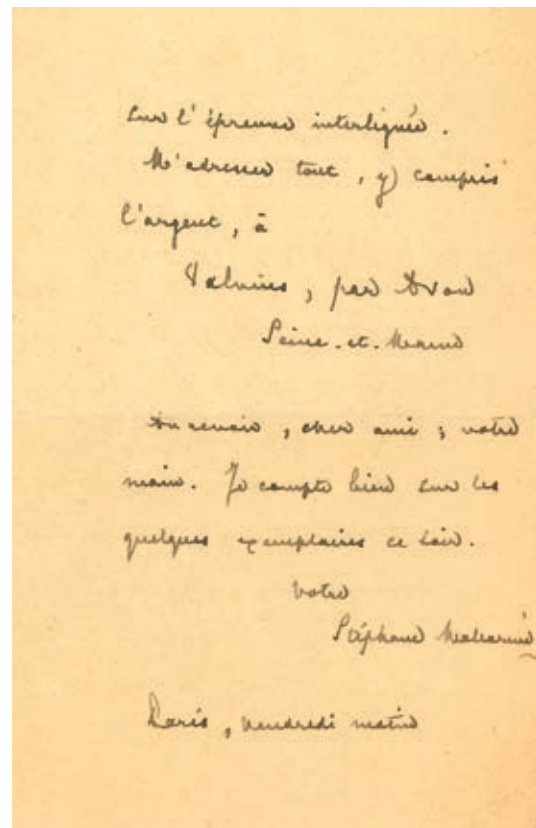 sur l'épreuve interlignée.
M'adresser tout, y compris
l'argent, à
Valvins, par Avon
Seine-et-Marne
Au revoir, cher ami ; votre
main. Je compte bien sur les
quelques exemplaires ce soir.
Votre
Stéphane Mallarmé
Paris, vendredi matin